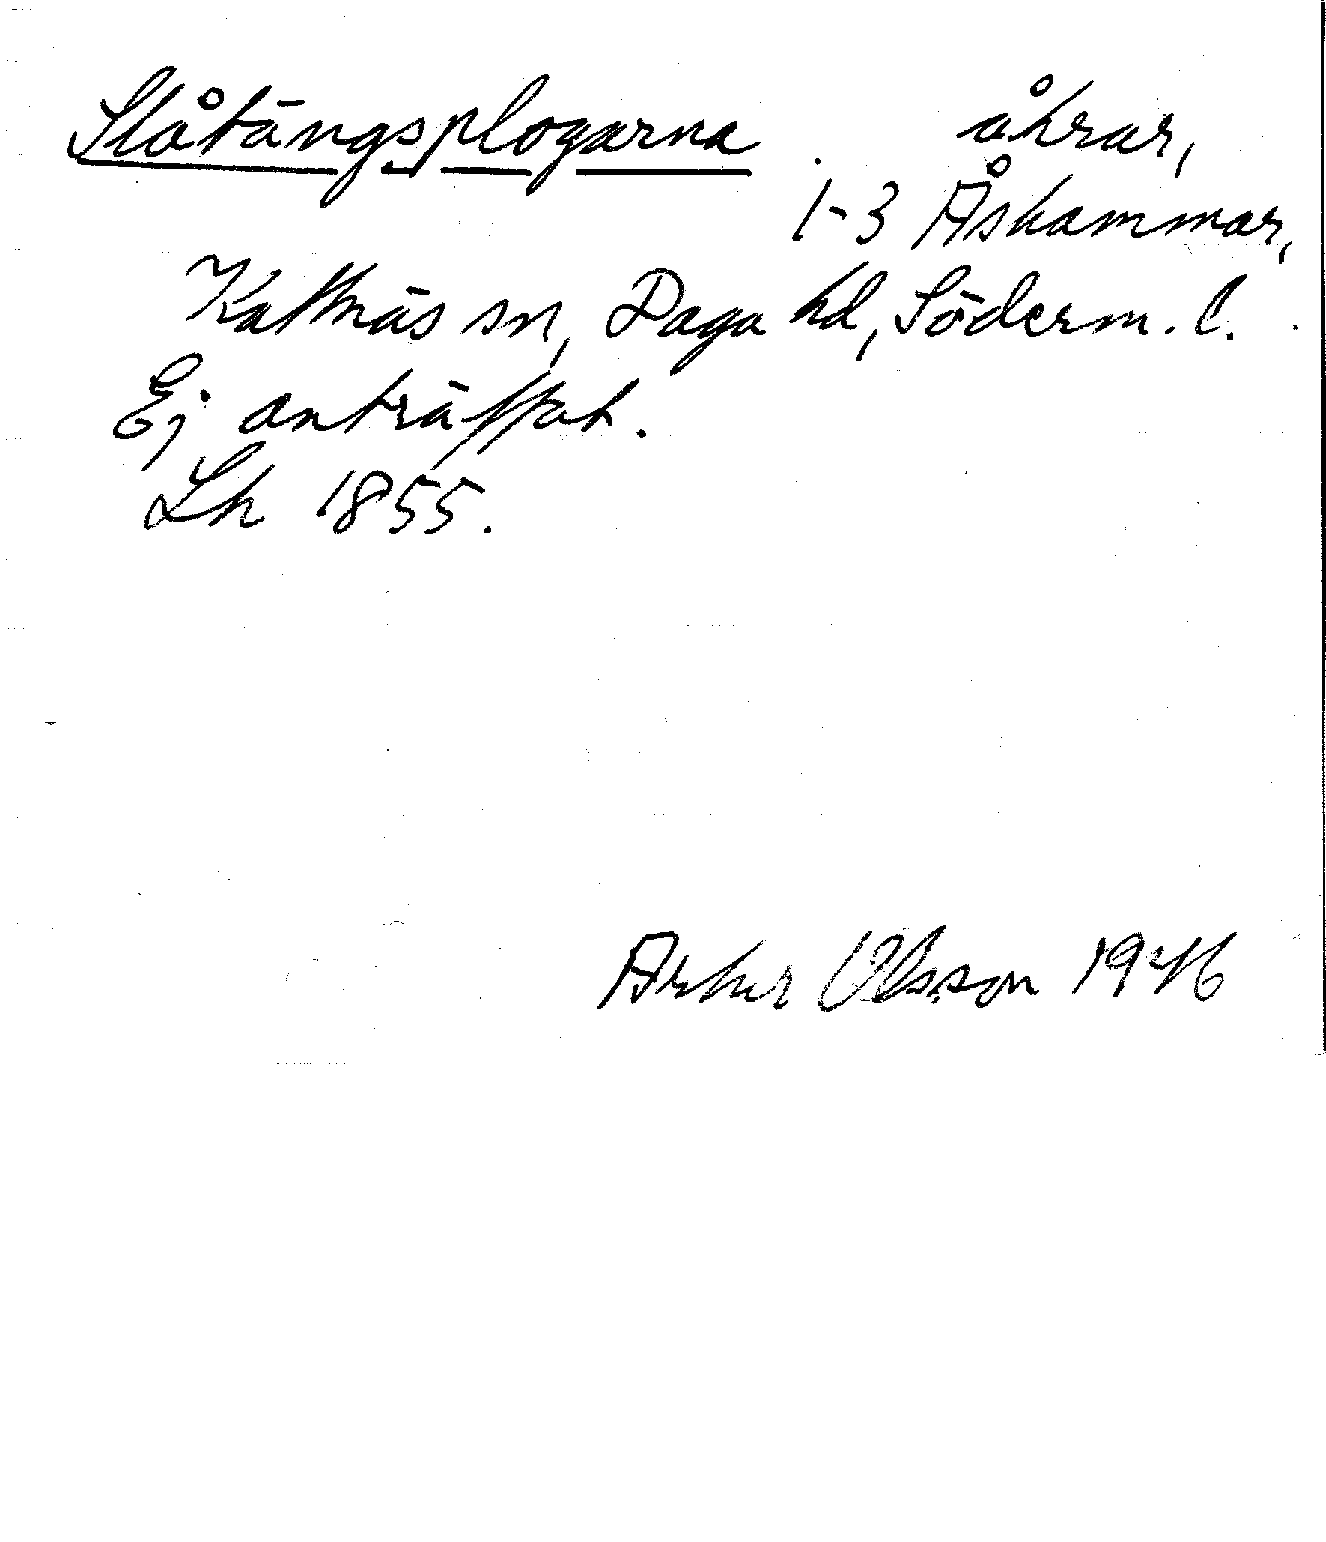 Slåtängsplogarna åkrar,
1-3 Åskammar,
Kattnäs sn, Daga hd, Söderm. l.
Ej anträffat.
Lh 1855.
Artur Olsson 1946